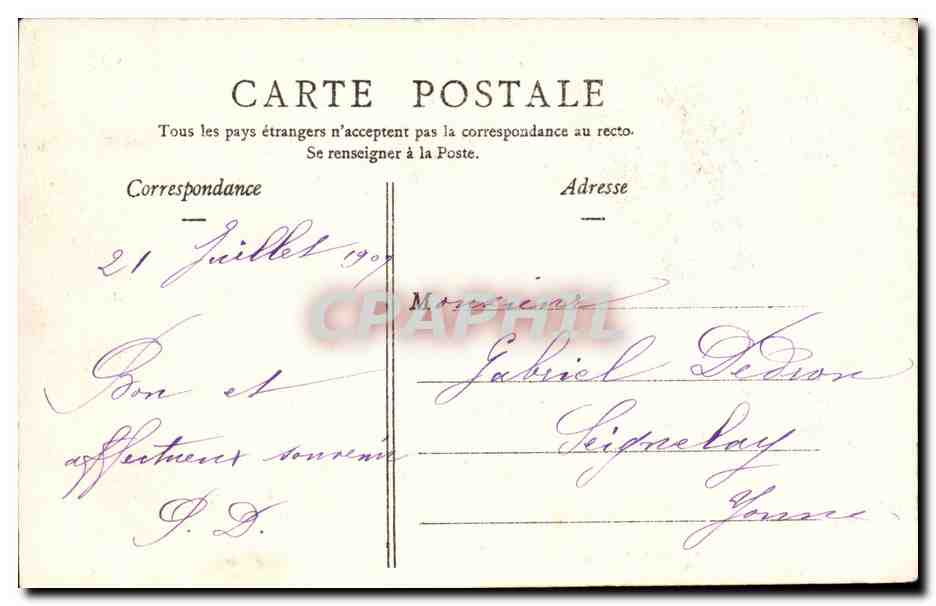 CARTE POSTALE
Tous les pays étrangers n'acceptent pas la correspondance au recto.
Se renseigner à la Poste.
Correspondance
Adresse
21 Juillet 1909
Bon et
affectueux souvenir
Monsieur
Gabriel Dedron
Seignelay
Yonne
CPAPHIL